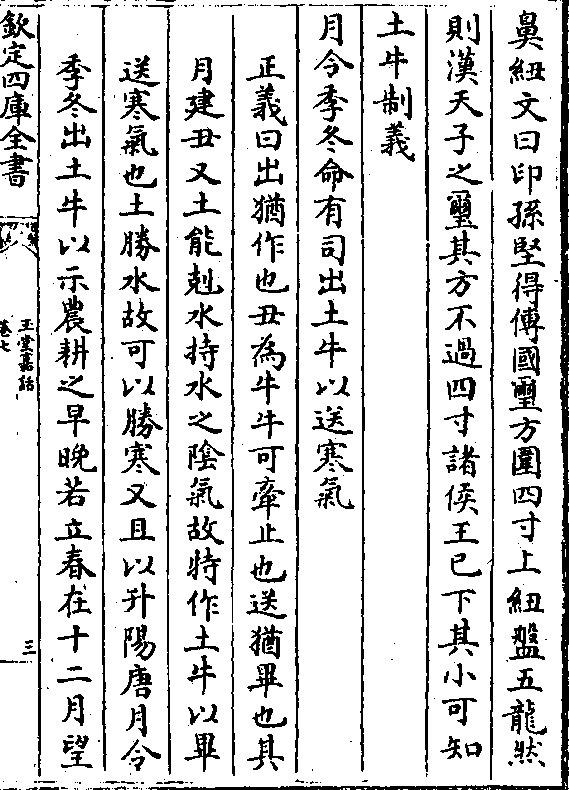 鼻紐文曰印孫堅得傳國璽方圍四寸上紐盤五龍然
則漢天子之璽其方不過四寸諸侯王已下其小可知
土牛制義
月令季冬命有司出土牛以送寒氣
正義曰出猶作也丑為牛牛可牽止也送猶畢也其
月建丑又土能剋水持水之陰氣故特作土牛以畢
送寒氣也土勝水故可以勝寒又且以升陽唐月令
季冬出土牛以示農耕之早晚若立春在十二月望
欽定四庫全書
玉堂嘉話
卷七
三